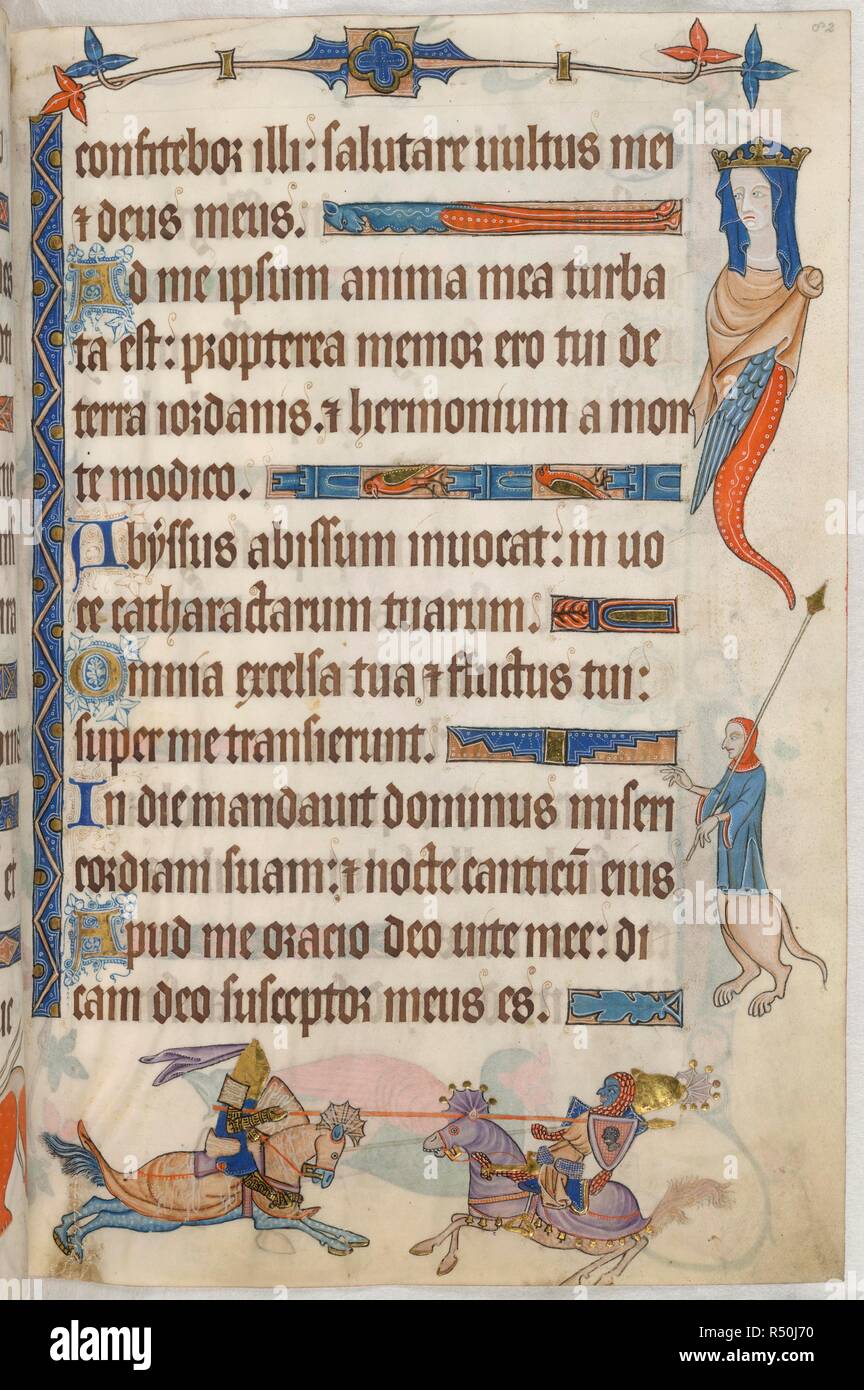 82
confitebor illi: salutare uultus mei
⁊ deus meus.
Ad me ipsum anima mea turba
ta est: propterea memor ero tui de
terra iordanis. ⁊ hermonium a mon
te modico.
Abyssus abissum inuocat: in uo
ce catharactarum tuarum.
Omnia excelsa tua ⁊ fluctus tui:
super me transierunt.
In die mandauit dominus miseri
cordiam suam: ⁊ nocte canticū eius
Apud me oracio deo uite mee: di
cam deo susceptor meus es.
alamy
Image ID: R50J70
www.alamy.com